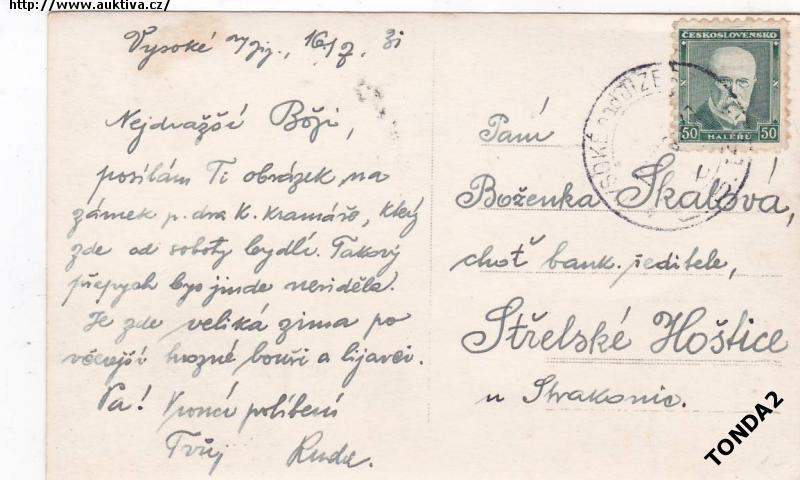 http://www.auktiva.cz/
Vysoké n/Jiz., 16/7. 31
Nejdražší Boži,
posílám Ti obrázek na
zámek p. dra K. Kramáře, který
zde od soboty bydlí. Takový
přepych bys jinde neviděla.
Je zde veliká zima po
včerejší hrozné bouři a lijavci.
Pa! Vroucí políbení
Tvůj Ruda.
ČESKOSLOVENSKO
50 HALÉŘŮ 50
VYSOKÉ nad JIZEROU
Paní
Boženka Skalová,
choť bank. ředitele,
Střelské Hoštice
u Strakonic.
TONDA2